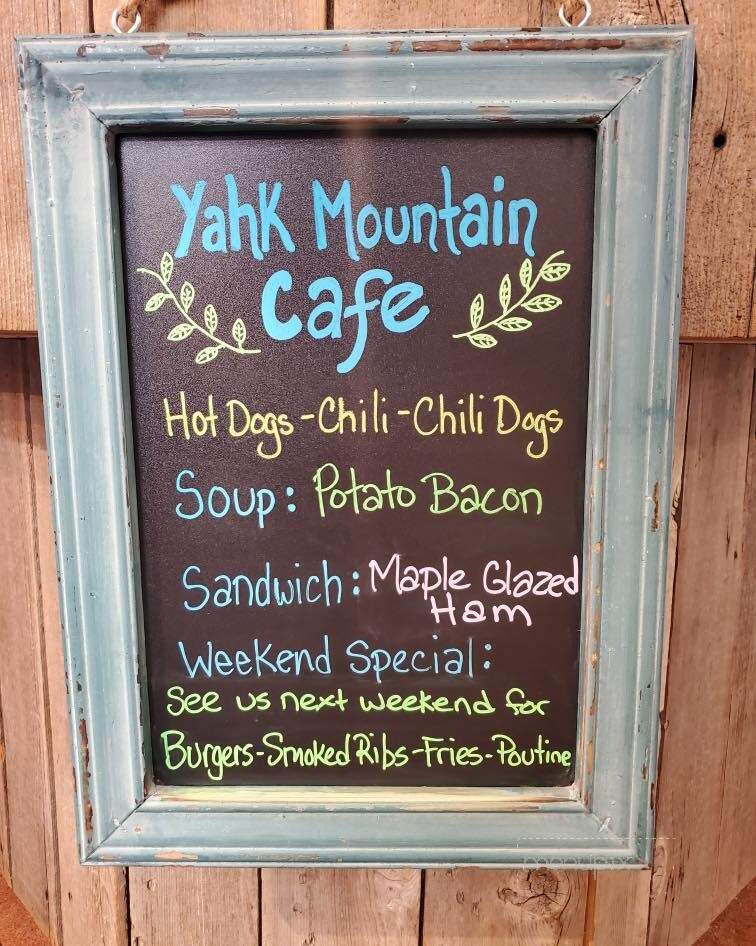 Yahk Mountain
Cafe
Hot Dogs - Chili - Chili Dogs
Soup: Potato Bacon
Sandwich: Maple Glazed
Ham
Weekend Special:
See us next weekend for
Burgers - Smoked Ribs - Fries - Poutine